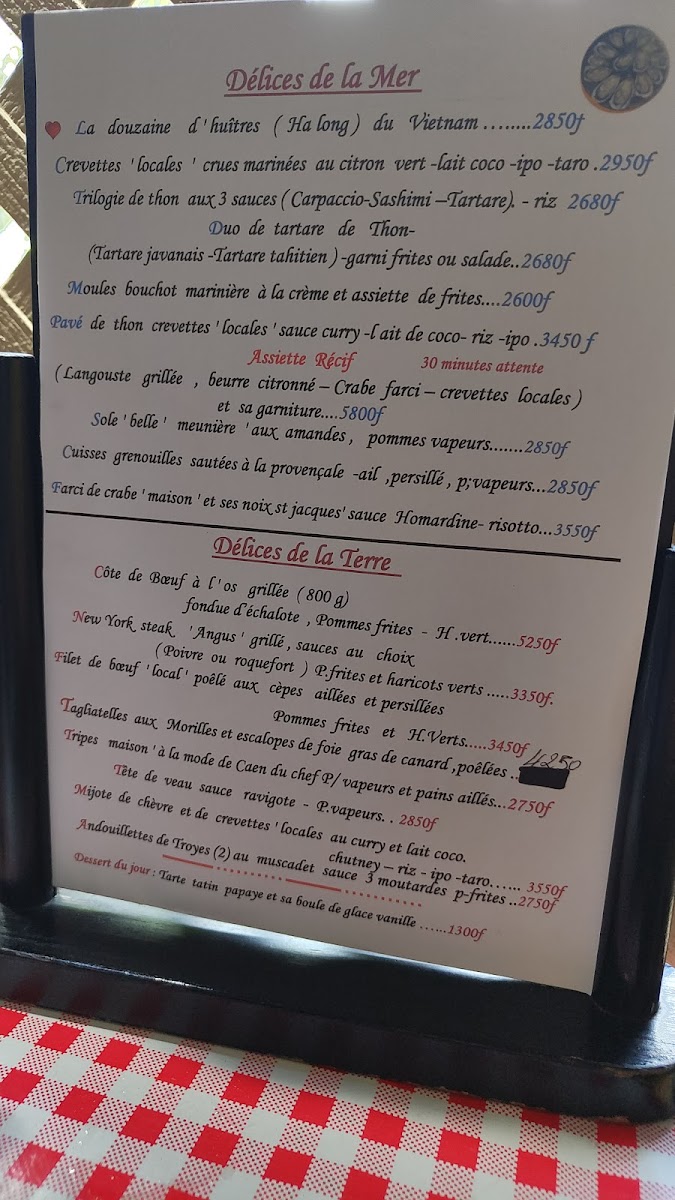 Délices de la Mer
La douzaine d'huîtres ( Ha long ) du Vietnam ….....2850f
Crevettes 'locales ' crues marinées au citron vert -lait coco -ipo -taro .2950f
Trilogie de thon aux 3 sauces ( Carpaccio-Sashimi –Tartare). - riz 2680f
Duo de tartare de Thon-
(Tartare javanais -Tartare tahitien ) -garni frites ou salade..2680f
Moules bouchot marinière à la crème et assiette de frites....2600f
Pavé de thon crevettes 'locales 'sauce curry -l ait de coco- riz -ipo .3450 f
Assiette Récif 30 minutes attente
( Langouste grillée , beurre citronné – Crabe farci – crevettes locales )
et sa garniture....5800f
Sole 'belle ' meunière 'aux amandes , pommes vapeurs.......2850f
Cuisses grenouilles sautées à la provençale -ail ,persillé , p;vapeurs...2850f
Farci de crabe 'maison 'et ses noix st jacques' sauce Homardine- risotto...3550f
Délices de la Terre
Côte de Bœuf à l'os grillée ( 800 g)
fondue d'échalote , Pommes frites - H .vert......5250f
New York steak 'Angus ' grillé , sauces au choix
( Poivre ou roquefort ) P.frites et haricots verts .....3350f.
Filet de bœuf 'local ' poêlé aux cèpes aillées et persillées
Pommes frites et H.Verts.....3450f
Tagliatelles aux Morilles et escalopes de foie gras de canard ,poêlées .. 4250
Tripes maison ' à la mode de Caen du chef P/ vapeurs et pains aillés...2750f
Tête de veau sauce ravigote - P.vapeurs. . 2850f
Mijote de chèvre et de crevettes 'locales au curry et lait coco.
chutney – riz - ipo -taro...… 3550f
Andouillettes de Troyes (2) au muscadet sauce 3 moutardes p-frites ..2750f
Dessert du jour : Tarte tatin papaye et sa boule de glace vanille …...1300f